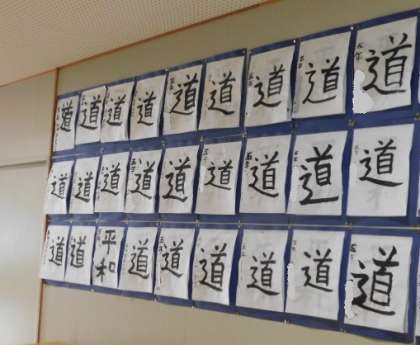 道 道 道 道 道 道 道 道 道
道 道 道 道 道 道 道 道 道
道 道 平和 道 道 道 道 道 道